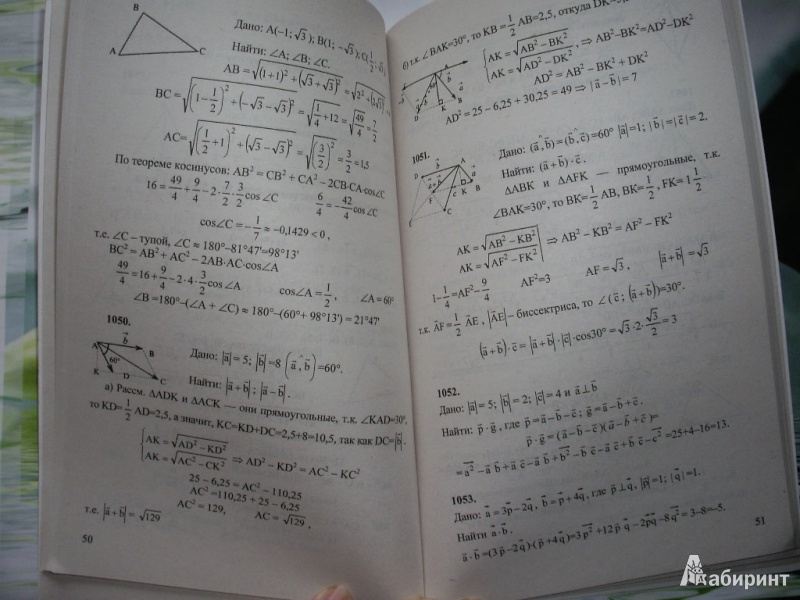 B
A
C
Дано: A(−1; √3); B(1; −√3); C(1/2; √3).
Найти: ∠A; ∠B; ∠C.
AB = √((1+1)² + (√3+√3)²) = √(2² + (2√3)²)
BC = √((1−1/2)² + (−√3−√3)²) = √(1/4+12) = √(49/4) = 7/2
AC = √((1/2+1)² + (√3−√3)²) = √((3/2)²) = 3/2 = 1,5
По теореме косинусов: AB² = CB² + CA² − 2CB·CA·cos∠C
16 = 49/4 + 9/4 − 2·7/2·3/2 cos∠C     6/4 = −42/4 cos∠C
cos∠C = −1/7 ≈ −0,1429 < 0 ,
т.е. ∠C – тупой, ∠C ≈ 180°−81°47'=98°13'
BC² = AB² + AC² − 2AB·AC·cos∠A
49/4 = 16 + 9/4 − 2·4·3/2 cos∠A     cos∠A = 1/2 ,     ∠A = 60°
∠B =180°−(∠A + ∠C) ≈ 180°−(60°+ 98°13') = 21°47'
1050.
A
b
B
60°
K
D
C
Дано: |a| = 5; |b| =8 (a^,b) =60°.
Найти: |a+b|; |a−b|.
а) Рассм. ΔADK и ΔACK — они прямоугольные, т.к. ∠KAD=30°,
то KD= 1/2 AD=2,5, а значит, KC=KD+DC=2,5+8=10,5, так как DC=|b|.
{AK = √(AD² − KD²)
{AK = √(AC² − CK²) ⇒ AD² − KD² = AC² − KC²
25 − 6,25 = AC² − 110,25
AC² = 110,25 + 25 − 6,25
AC² = 129,     AC = √129 ,
т.е. |a+b| = √129
50
б) т.к. ∠BAK=30°, то KB = 1/2 AB=2,5, откуда
{AK = √(AB² − BK²)
{AK = √(AD² − DK²) ⇒ AB²−BK²=AD²−DK²
AD² = AB² − BK² + DK²
AD² = 25 − 6,25 + 30,25 = 49 ⇒ |a−b| = 7
1051.
Дано: (a^,b) = (b^,c) =60° |a|=1; |b|=|c|= 2.
Найти: (a+b)·c.
ΔABK и ΔAFK — прямоугольные, т.к.
∠BAK=30°, то BK= 1/2 AB, BK= 1/2 , FK= 1 1/2
AK = √(AB² − KB²)
AK = √(AF² − FK²) ⇒ AB² − KB² = AF² − FK²
1−1/4=AF²−9/4     AF²=3     AF = √3 ,     |a+b| = √3
т.к. AF= 1/2 AE , |AE| – биссектриса, то ∠(c ; (a+b))=30°.
(a+b)·c = |a+b|·|c|·cos30° = √3·2·√3/2 = 3
1052.
Дано: |a| = 5; |b| = 2; |c| = 4 и a⊥b
Найти: p·g, где p = a−b−c; g = a−b+c.
p·g = (a−b−c)(a−b+c)=
=a²−a b+a c−a b+b²−b c−a c+b c−c²=25+4−16=13.
1053.
Дано: a = 3p−2q, b = p+4q, где p⊥q, |p|=1; |q|=1.
Найти a·b.
a·b=(3p−2q)·(p+4q)=3p²+12p q−2pq−8q²=3−8=−5.
51
Лабиринт